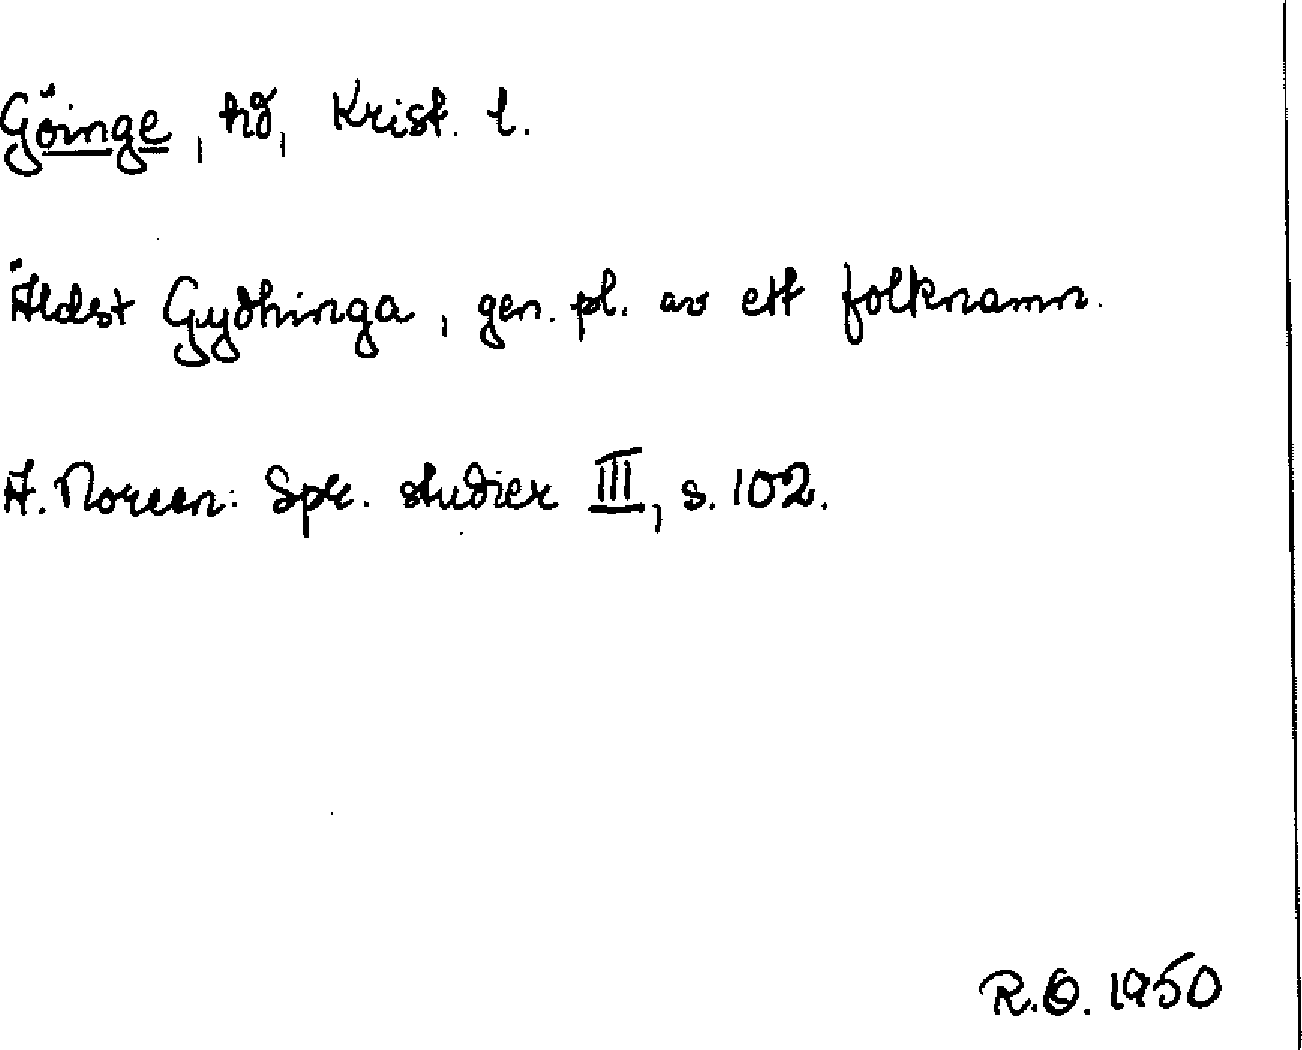 Göinge, hd, Krist. l.
Äldst Gydhinga, gen. pl. av ett folknamn.
A. Noreen: Spr. studier III, s. 102.
R.O. 1950